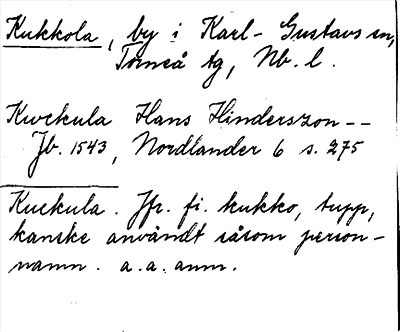 Kukkola, by i Karl-Gustavs sn,
Torneå tg, Nb. l.
Kwckula Hans Hinderszon --
Jb. 1543, Nordlander 6 s. 275
Kuckula. Jfr. fi. kukko, tupp,
kanske användt såsom person-
namn. a. a. anm.